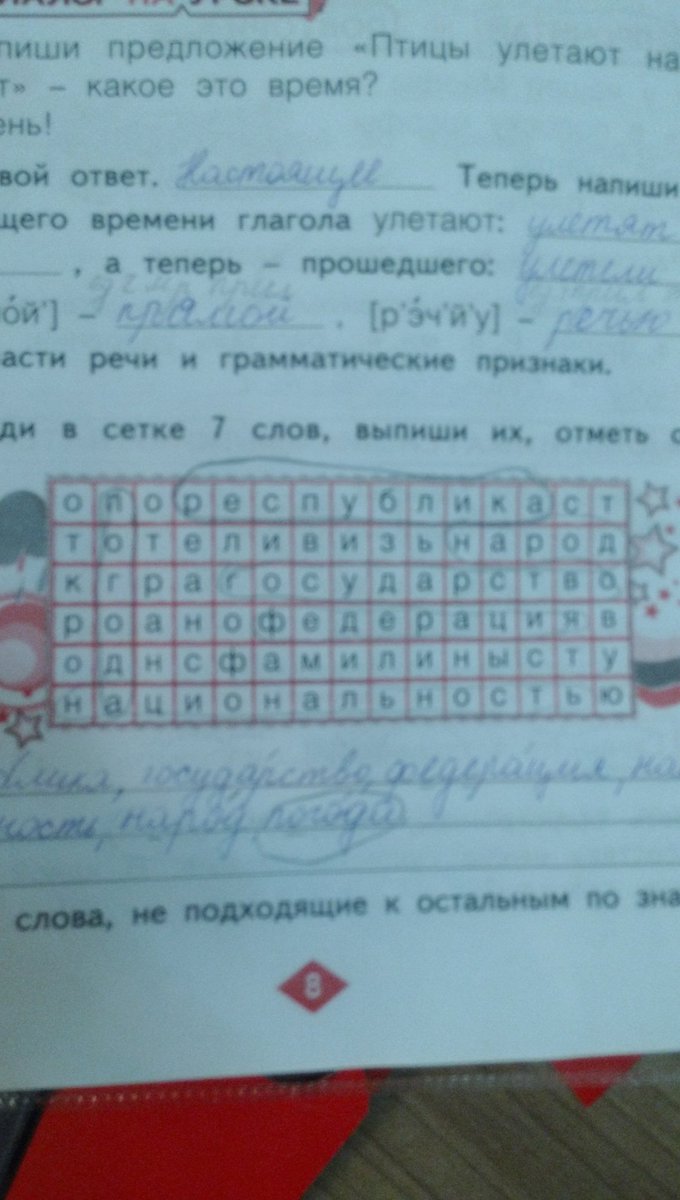 НА УРОКЕ
пиши предложение «Птицы улетают на
т» – какое это время?
ень!
вой ответ. Настоящее Теперь напиши
щего времени глагола улетают: улетят
, а теперь – прошедшего: улетели
о́й'] – прямой . [р'э́ч'й'у] – речью
асти речи и грамматические признаки.
ди в сетке 7 слов, выпиши их, отметь
о п о р е с п у б л и к а с т
т о т е л и в и з ь н а р о д
к г р а г о с у д а р с т в о
р о а н о ф е д е р а ц и я в
о д н с ф а м и л и н ы с т у
н а ц и о н а л ь н о с т ь ю
блика, государство, федерация, на
ности, народ погода
слова, не подходящие к остальным по зна
9